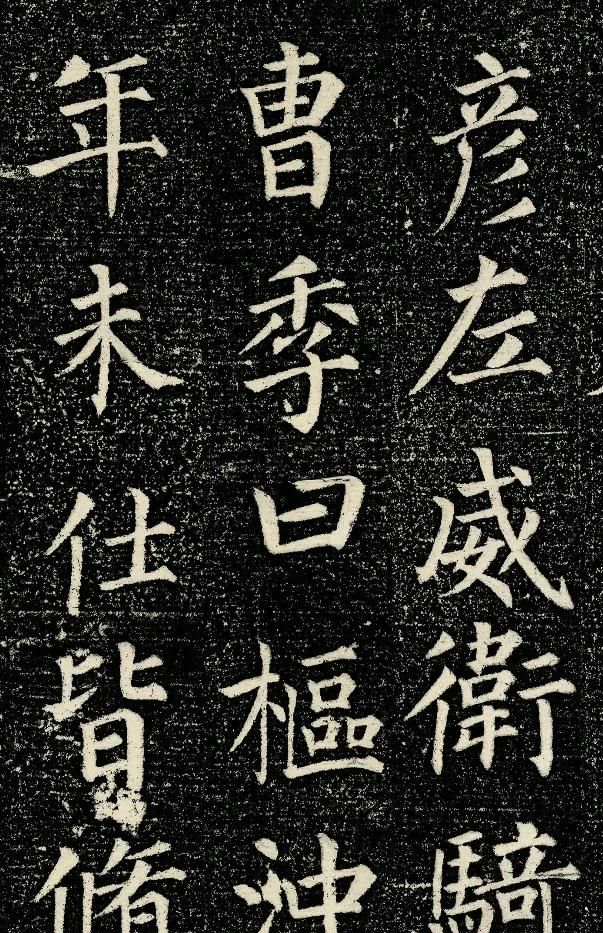 彦左威衛騎
曹季曰樞沖
年未仕皆脩